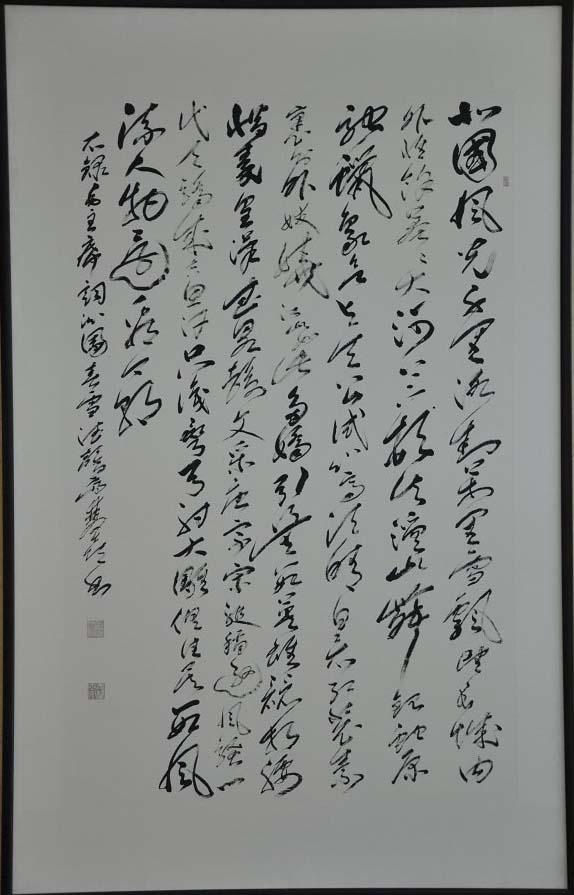 北國風光千里冰封萬里雪飄望長城內
外惟餘莽〻大河上下頓失滔〻山舞銀蛇原
馳蠟象欲與天公試比高須晴日看紅裝素
裹分外妖嬈江山如此多嬌引無數英雄競折腰
惜秦皇漢武略輸文采唐宗宋祖稍遜風騷一
代天驕成吉思汗只識彎弓射大雕俱往矣數風
流人物還看今朝
右錄毛主席詞沁園春雪 書